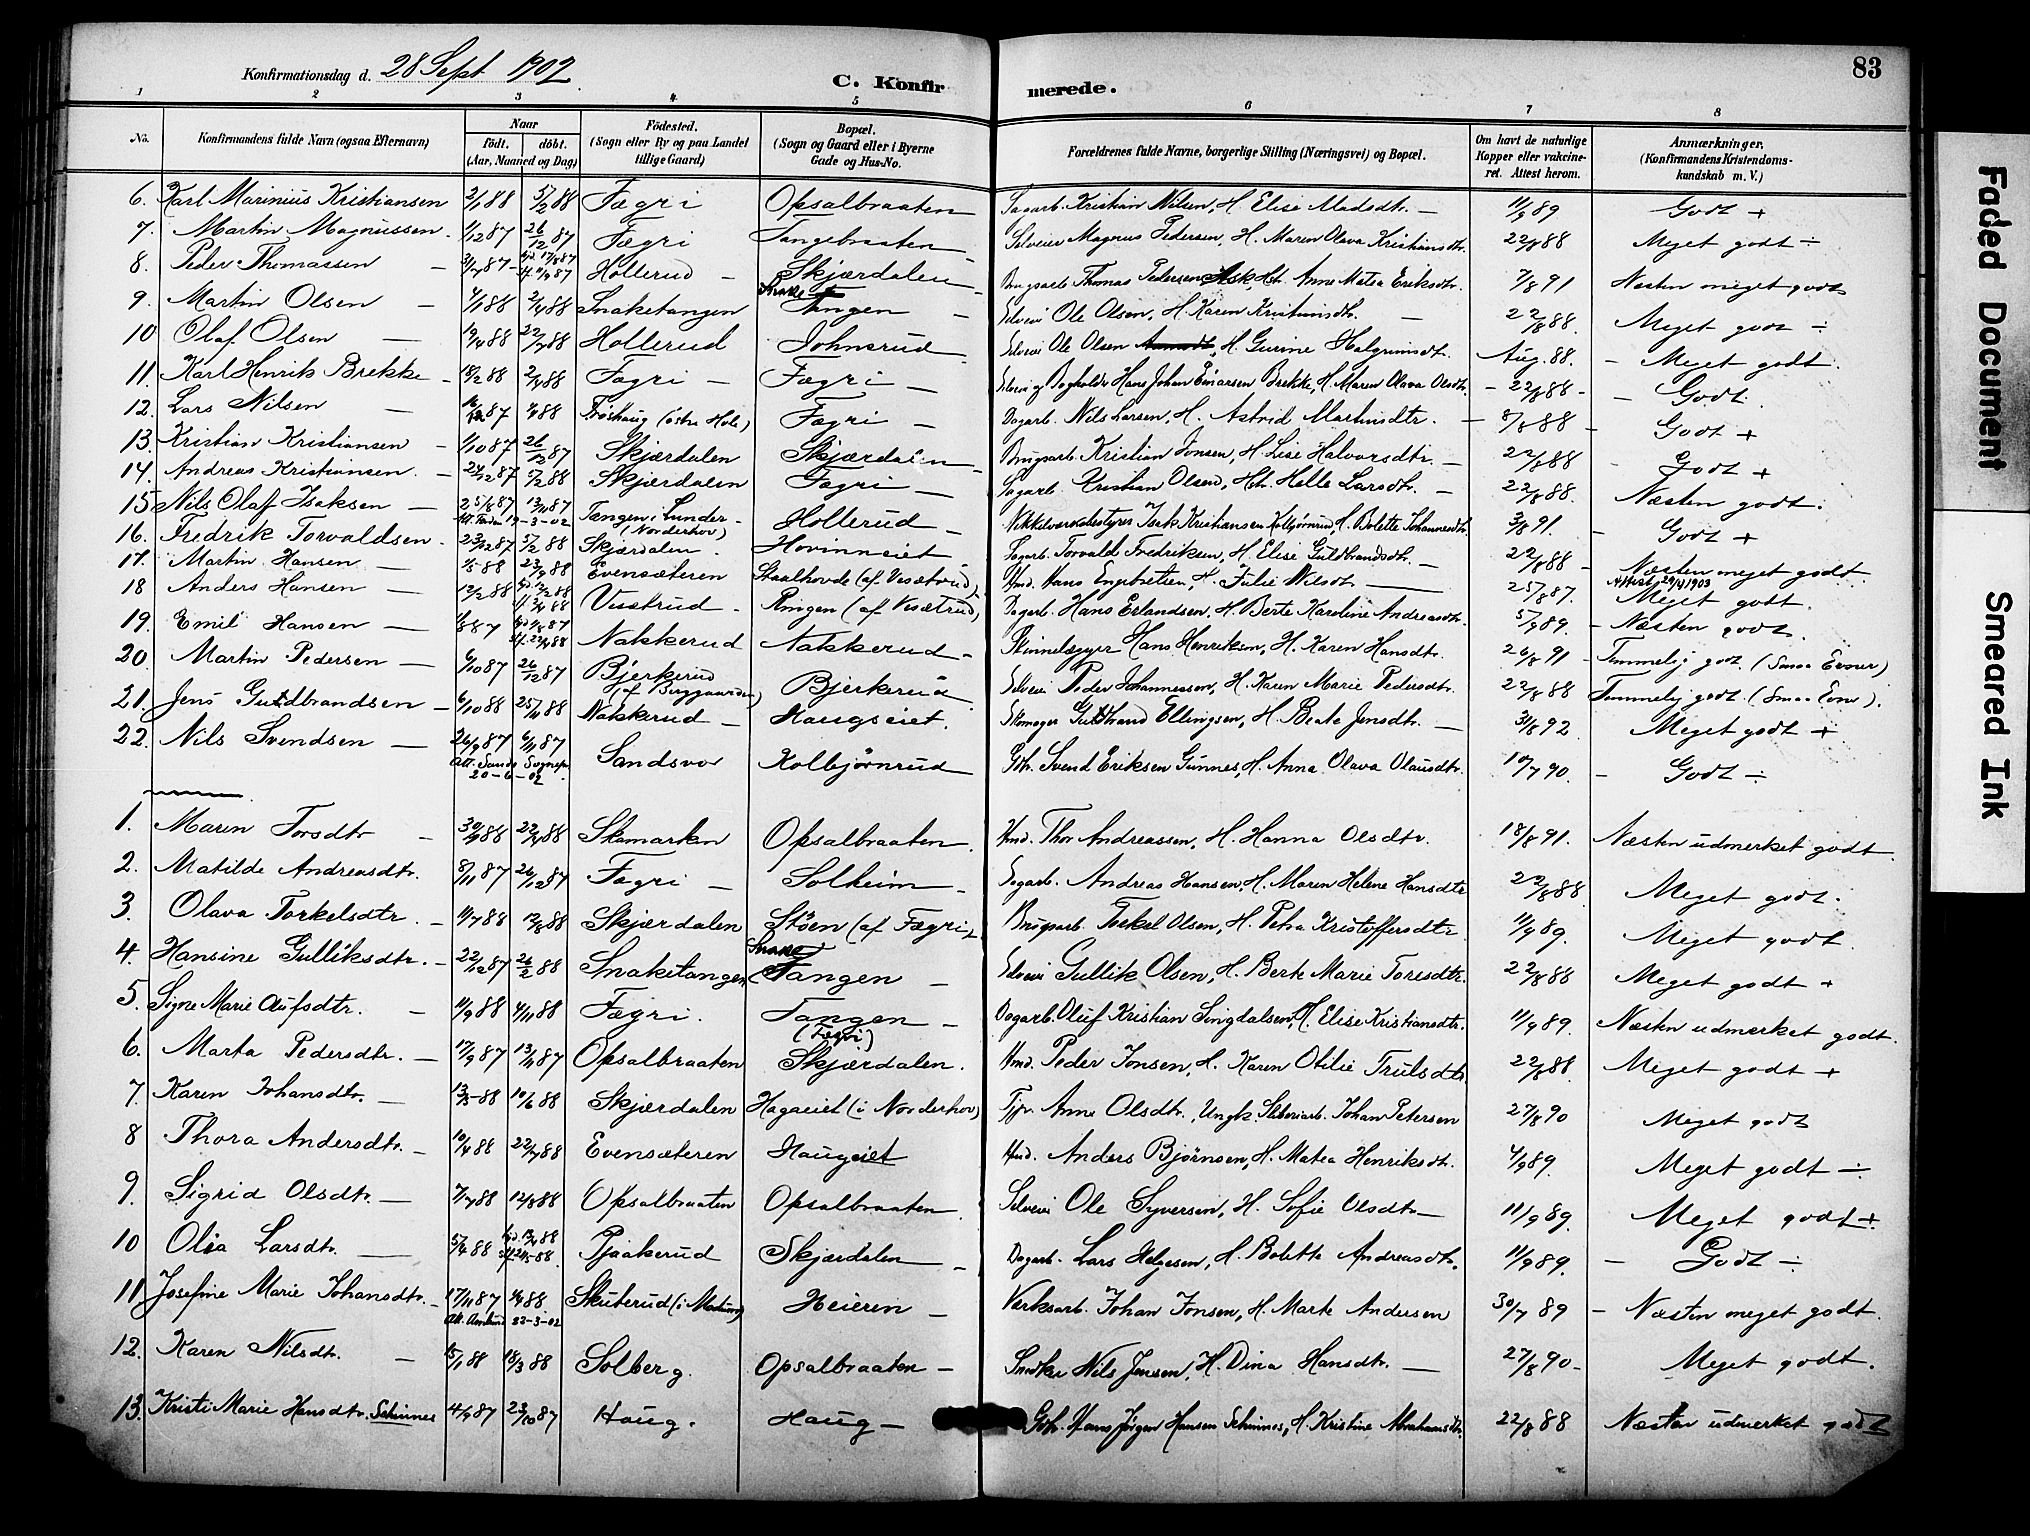 Konfirmationsdag d. 28 Sept 1902
C. Konfirmerede.
83
1 2 3 4 5 6 7 8
No. Konfirmandens fulde Navn (ogsaa Efternavn) Naar født. døbt. (Aar, Maaned og Dag) Fødested. (Sogn eller By og paa Landet tillige Gaard) Bopæl. (Sogn og Gaard eller i Byerne Gade og Hus-No. Forældrenes fulde Navne, borgerlige Stilling (Næringsvei) og Bopæl. Om havt de naturlige Kopper eller vakcineret. Attest herom. Anmærkninger. (Konfirmandens Kristendomskundskab m. V.)
6. Karl Marinius Kristiansen 2/1 88 5/2 88 Fægri Opsalbraaten Sagarb. Kristian Nilsen, H. Elise Madsdtr. 11/9 89 Godt +
7. Martin Magnussen 1/12 87 26/12 87 Fægri Tangebraaten Selveier Magnus Pedersen, H. Maren Olava Kristiansdtr. 22/8 88 Meget godt ÷
8. Peder Thomassen Hollerud Skjærdalen Brugsarb. Thomas Pedersen Ask H. Anne Matea Eriksdtr. 7/8 91 Næsten meget godt
9. Martin Olsen 4/1 88 2/4 88 Snaketangen Snake Tangen Selvei Ole Olsen, H. Karen Kristiansdtr. 22/8 88. Meget godt ÷
10 Olaf Olsen 19/4 88 22/7 88 Hollerud Johnsrud Selveier Ole Olsen, H. Gurine Halgrimsdtr. Aug. 88. Meget godt.
11. Karl Henrik Brekke 18/2 88 2/4 88 Fægri Fægri Selvei g Bogholder Hans Johan Einarsen Brekke, H. Maren Olava Olsdtr. 22/8 88 Godt.
12. Lars Nilsen Trøshaug (østre Hole) Fægri Dagarb. Nils Larsen, H. Astrid Martinsdtr. 8/8 88 Godt +
13. Kristian Kristiansen 1/10 87 26/12 87 Skjærdalen Skjærdalen Brugsarb. Kristian Jonsen, H. Lise Halvorsdtr. 22/8 88 Godt +
14. Andreas Kristiansen 24/12 87 5/2 88 Skjærdalen Fægri Sagarb. Kristian Olsen, H. Helle Larsdtr. 22/8 88. Næsten godt.
15 Nils Olaf Isaksen 25/8 87 13/11 87 Tangen i Lunder (Norderhov) Hollerud Nikkelværksbestyrer Isak Kristiansen Kolbjørnrud, H. Bolette Johannesdtr. 3/8 91. Godt +
19-3-02
16. Fredrik Torvaldsen 23/12 87 5/2 88 Skjærdalen Hovinneiet Sagarb. Torvald Fredriksen, H. Elise Guldbrandsdtr. 22/8 88 Næsten meget godt.
17. Martin Hansen 1/5 88 23/9 88 Evensæteren Staalhovde (af Vesætrud) Hmd. Hans Engebretsen, H. Julie Nilsdtr. 25/8 87. Attest 29/4 1903 Meget godt.
18 Anders Hansen 12/2 88 Vesetrud Ringen (af Vesætrud) Dagarb. Hans Erlandsen, H. Berte Karoline Andreasdtr. 5/9 89. Næsten godt.
19. Emil Hansen 1/8 87 Nakkerud Nakkerud Skinnelægger Hans Henriksen, H. Karen Hansdtr. 26/8 91 Temmelig godt (Smaa Evner)
20 Martin Pedersen 6/10 87 26/12 87 Bjerkerud (af Borggaarden) Bjerkerud Selveier Peder Johannesson, H. Karen Marie Pedersdtr. 22/8 88 Temmelig godt (Smaa Evner).
21. Jens Guldbrandsen 6/10 88 25/11 88 Nakkerud Haugseiet. Skomager Guldbrand Ellingsen, H. Beate Jensdtr. 31/8 92 Meget godt +
22. Nils Svendsen 26/9 87 6/11 87 Sandsvor Kolbjørnrud Gbr. Svend Eriksen Gunnes, H. Anna Olava Olausdtr. 10/7 90. Godt ÷
Att. Sands Sognepr. 20-6-02
1. Maren Torsdtr 22/4 88 Skamarken Opsalbraaten. Hmd. Thor Andreassen, H. Hanna Olsdtr. 18/8 91. Næsten udmerket godt.
2. Matilde Andreasdtr. 8/11 87 26/12 87 Fægri Solheim Sagarb. Andreas Hansen, H. Maren Helene Hansdtr 22/8 88 Meget godt.
3. Olava Torkelsdtr. 11/7 88 12/8 88 Skjærdalen Støen (af Fægri) Brugsarb. Torkel Olsen, H. Petra Kristoffersdtr 11/9 89. Meget godt.
4. Hansine Gulliksdtr. 22/12 87 26/2 88 Snaketangen Snake Tangen Selveier Gullik Olsen, H. Berte Marie Toresdtr. 22/8 88 Meget godt +
5. Signe Marie Olufsdtr. 11/9 88 4/11 88 Fægri. Tangen (Fægri) Dagarb. Oluf Kristian Singdalsen, H. Elise Kristiansdtr. 11/9 89. Næsten udmerket godt.
6. Marta Pedersdtr. 17/9 87 13/11 87 Opsalbraaten Skjærdalen. Hmd. Peder Jonsen, H. Karen Otilie Trulsdtr. 22/8 88 Meget godt +
7. Karen Johansdtr. 13/3 88 10/6 88 Skjærdalen Hagaeiet (i Norderhov) Tjp. Anne Olsdtr., Ungk. Sliberiarb. Johan Petersen 27/8 90 Meget godt
8 Thora Andersdtr. 10/4 88 22/7 88 Evensæteren Haugeiet Hmd. Anders Bjørnsen, H. Matea Henriksdtr. 4/9 89. Meget godt ÷
9. Sigrid Olsdtr. 7/7 88 12/8 88 Opsalbraaten Opsalbraaten Selveier Ole Syversen, H. Sofie Olsdtr. 11/9 89. Meget godt +
10 Olea Larsdtr. 5/4 88 Pjaakerud Skjærdalen Dagarb. Lars Helgesen, H. Bolette Andreasdtr. 11/9 89. Godt ÷
11 Josefine Marie Johansdtr. 17/11 87 Skuterud (i Modum) Heieren Værksarb. Johan Jonsen, H. Marte Andersen 30/7 89 Næsten meget godt.
22-3-02
12. Karen Nilsdtr. 15/1 88 18/3 88 Solberg. Opsalbraaten Snedker Nils Jensen, H. Dina Hansdtr. 27/8 90 Meget godt.
13. Kristi Marie Hansdtr. Schinnes 4/9 87 23/10 87 Haug. Haug Gbr. Hans Jørgen Hansen Schinnes, H. Kristine Abrahamsdtr. 22/8 88 Næsten udmerket godt
Faded Document
Smeared Ink